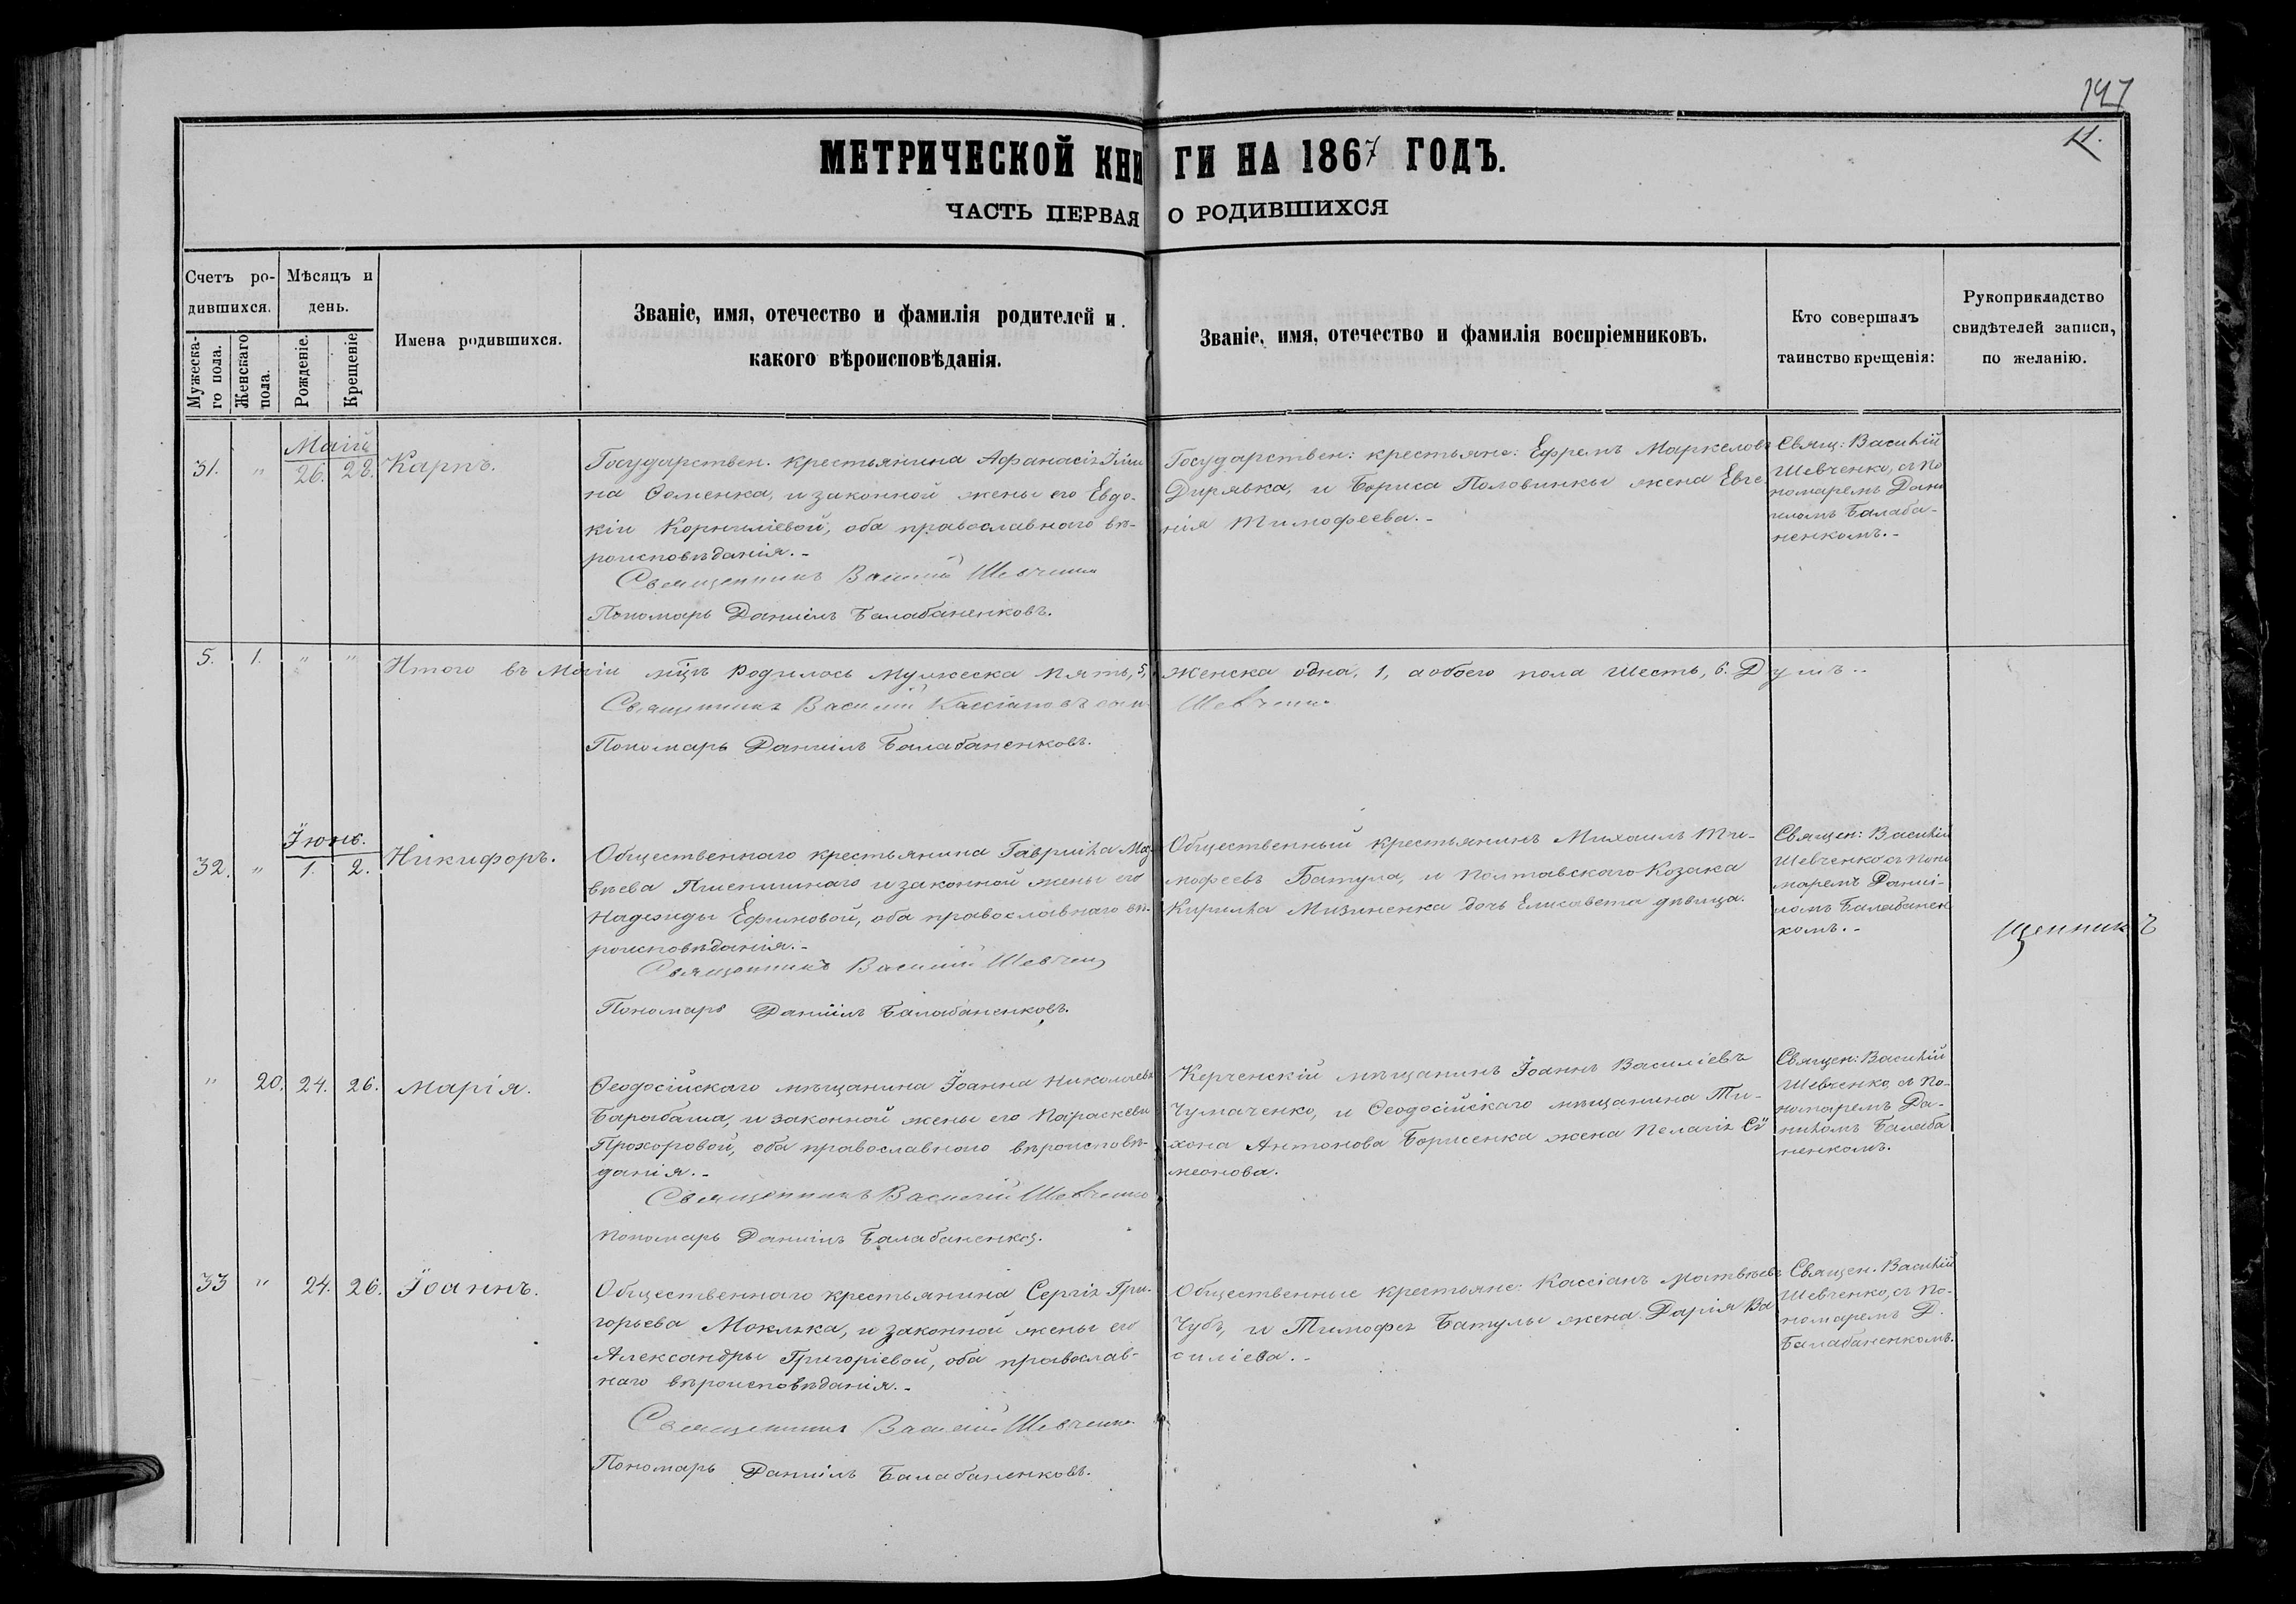 197
МЕТРИЧЕСКОЙ КНИГИ НА 1867 ГОДЪ.
ЧАСТЬ ПЕРВАЯ О РОДИВШИХСЯ
Счетъ ро-
дившихся.
Мужеска-
го пола.
Женскаго
пола.
Мѣсяцъ и
день.
Рожденіе.
Крещеніе
Имена родившихся.
Званіе, имя, отечество и фамилія родителей и
какого вѣроисповѣданія.
Званіе, имя, отечество и фамилія воспріемниковъ.
Кто совершалъ
таинство крещенія:
Рукоприкладство
свидѣтелей записи,
по желанію.
Маій
31. " 26. 28. Карпъ.
Государствен. крестьянина Афанасія
на Ѳоменка, и законной жены его Евдо-
кіи Корниліевой, оба православнаго вѣ-
роисповѣданія.-
Священникъ Василій Шевченко
Пономарь Даніилъ Балабаненковъ.
Государствен: крестьяне: Ефремъ Маркеловъ
Дирявка, и Бориса Половинки жена Евге-
нія Тимофеева.-
Свящ: Василій
Шевченко, съ по
номаремъ Дані
иломъ Балаба-
ненкомъ.-
5. 1. " " Итого въ Маіи мцѣ родилось мужеска пять, 5, женска одна, 1, а обоего пола шесть, 6. Душъ.-
Священникъ Василій Кассіановъ сынъ Шевченко
Пономарь Даніилъ Балабаненковъ.
Іюнь.
32. " 1. 2. Никифоръ.
Общественнаго крестьянина Гавриила Мат-
вѣева Пшенишнаго и законной жены его
Надежды Ефимовой, оба православнаго вѣ-
роисповѣданія.-
Священникъ Василій Шевченко
Пономарь Даніилъ Балабаненковъ.
Общественный крестьянинъ Михаилъ Ти-
мофеевъ Батула, и Полтавскаго Козака
Кирилла Мизиненка дочь Елисавета дѣвица.
Священ: Василій
Шевченко съ поно
маремъ Даніи-
ломъ Балабанен
комъ.-
щенникъ
" 20. 24. 26. Марія.
Ѳеодосійскаго мѣщанина Іоанна Николаева
Барыбаша, и законной жены его Параскевы
Прохоровой, оба православнаго вѣроисповѣ-
данія.-
Священникъ Василій Шевченко
Пономарь Даніилъ Балабаненковъ.
Керченскій мѣщанинъ Іоаннъ Василіевъ
Чумаченко, и Ѳеодосійскаго мѣщанина Ти-
хона Антонова Борисенка жена Пелагія Си
меонова.
Священ: Василій
Шевченко, съ по-
номаремъ Да-
ниломъ Балаба
ненкомъ.
33 " 24. 26. Іоаннъ.
Общественнаго крестьянина Сергія Гри-
горьева Мокляка, и законной жены его
Александры Григоріевой, оба православ-
наго вѣроисповѣданія.-
Священникъ Василій Шевченко
Пономарь Даніилъ Балабаненковъ.
Общественные крестьяне: Кассіанъ Матвѣевъ
Чубъ, и Тимофея Батулы жена Дарія Ва
силіева.-
Священ. Василій
Шевченко, съ по-
номаремъ Д.
Балабаненкомъ.